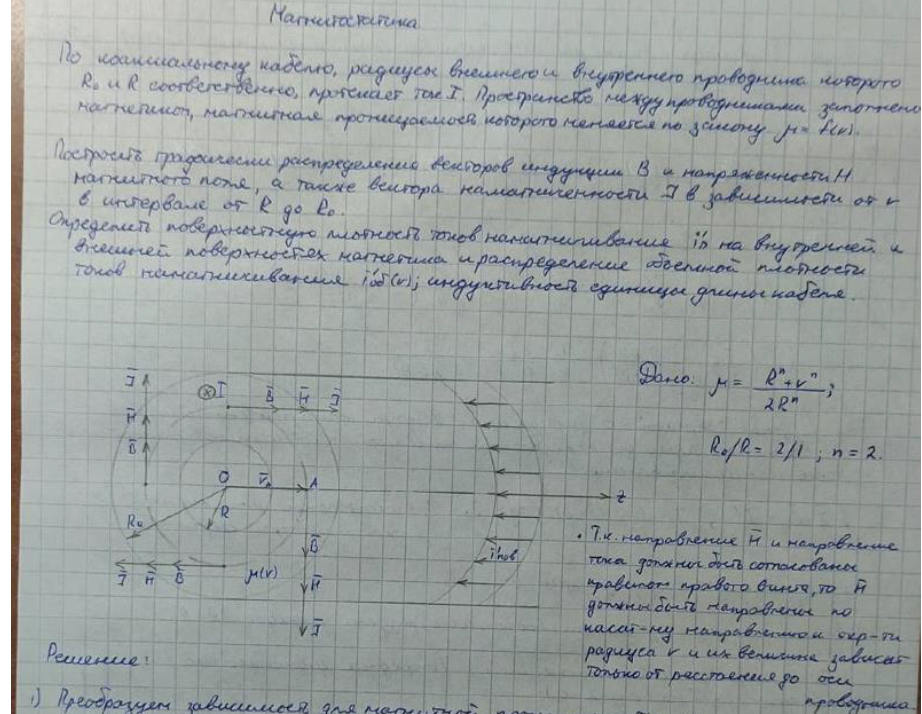 Магнитостатика
По коаксиальному кабелю, радиусы внешнего и внутреннего проводника которого
R₀ и R соответственно, протекает ток I. Пространство между проводниками заполнено
магнетиком, магнитная проницаемость которого меняется по закону μ = f(r).
Построить графически распределения векторов индукции B и напряженности H
магнитного поля, а также вектора намагниченности J в зависимости от r
в интервале от R до R₀.
Определить поверхностную плотность токов намагничивания i'п на внутренней и
внешней поверхностях магнетика и распределение объемной плотности
токов намагничивания i'об(r); индуктивность единицы длины кабеля.
Дано: μ = (Rⁿ + rⁿ) / 2Rⁿ ;
R₀/R = 2/1 ; n = 2.
J̄ ⊗ Ī B̄ H̄ J̄
H̄
B̄
O r̄ A z
R₀ R
B̄ i'пов
J̄ H̄ B̄ μ(r) H̄
J̄
• Т.к. направление H̄ и направление
тока должны быть согласованы
правилом правого винта, то H̄
должны быть направлены по
касат-му направлению к окр-ти
радиуса r и их величина зависит
только от расстояния до оси
проводника.
Решение:
1) Преобразуем зависимость для магнитной